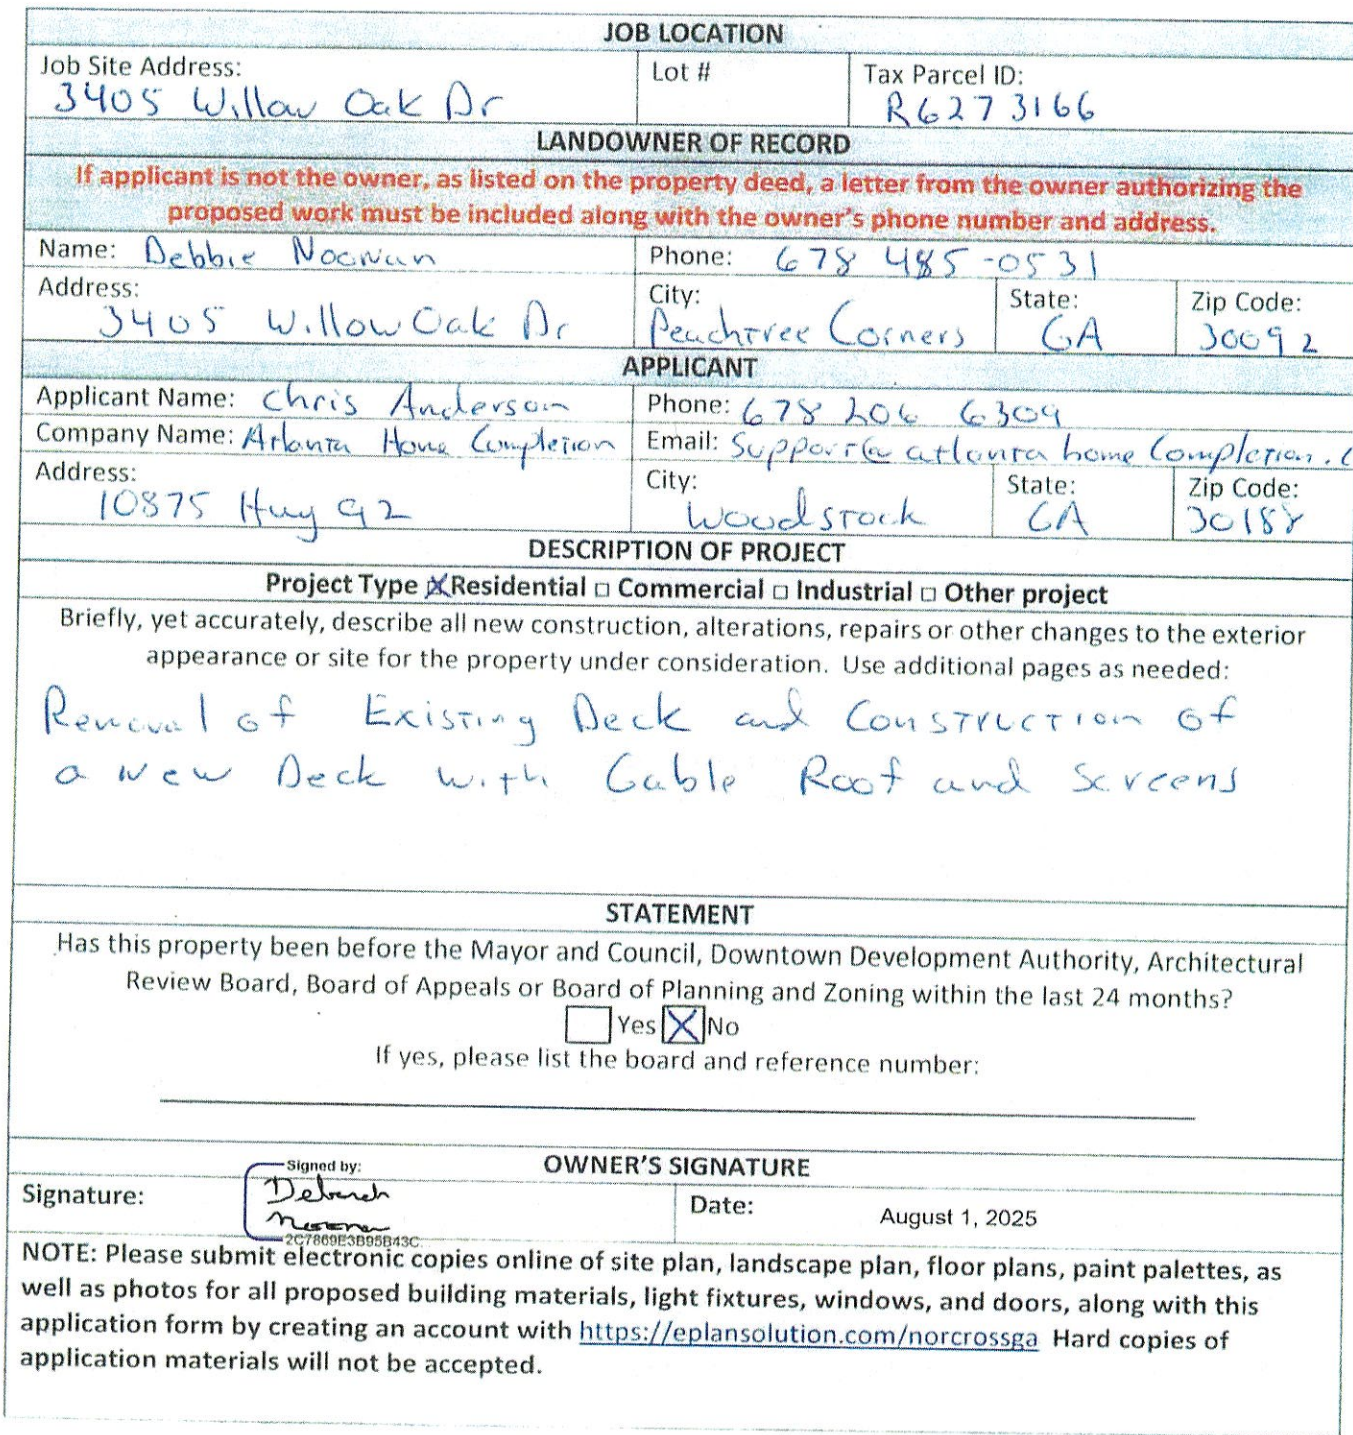 JOB LOCATION
Job Site Address: Lot # Tax Parcel ID:
3405 Willow Oak Dr R6273166
LANDOWNER OF RECORD
If applicant is not the owner, as listed on the property deed, a letter from the owner authorizing the
proposed work must be included along with the owner's phone number and address.
Name: Debbie Noonan Phone: 678 485-0531
Address: City: State: Zip Code:
3405 Willow Oak Dr Peachtree Corners GA 30092
APPLICANT
Applicant Name: Chris Anderson Phone: 678 206 6309
Company Name: Atlanta Home Completion Email: Support@atlantahomeCompletion.C
Address: City: State: Zip Code:
10875 Hwy 92 Woodstock GA 30188
DESCRIPTION OF PROJECT
Project Type ☒ Residential □ Commercial □ Industrial □ Other project
Briefly, yet accurately, describe all new construction, alterations, repairs or other changes to the exterior
appearance or site for the property under consideration. Use additional pages as needed:
Removal of Existing Deck and Construction of
a New Deck with Gable Roof and Screens
STATEMENT
Has this property been before the Mayor and Council, Downtown Development Authority, Architectural
Review Board, Board of Appeals or Board of Planning and Zoning within the last 24 months?
☐ Yes ☒ No
If yes, please list the board and reference number:
OWNER'S SIGNATURE
Signed by:
Signature: Deborah Noonan Date: August 1, 2025
2C7869E3B95B43C
NOTE: Please submit electronic copies online of site plan, landscape plan, floor plans, paint palettes, as
well as photos for all proposed building materials, light fixtures, windows, and doors, along with this
application form by creating an account with https://eplansolution.com/norcrossga Hard copies of
application materials will not be accepted.